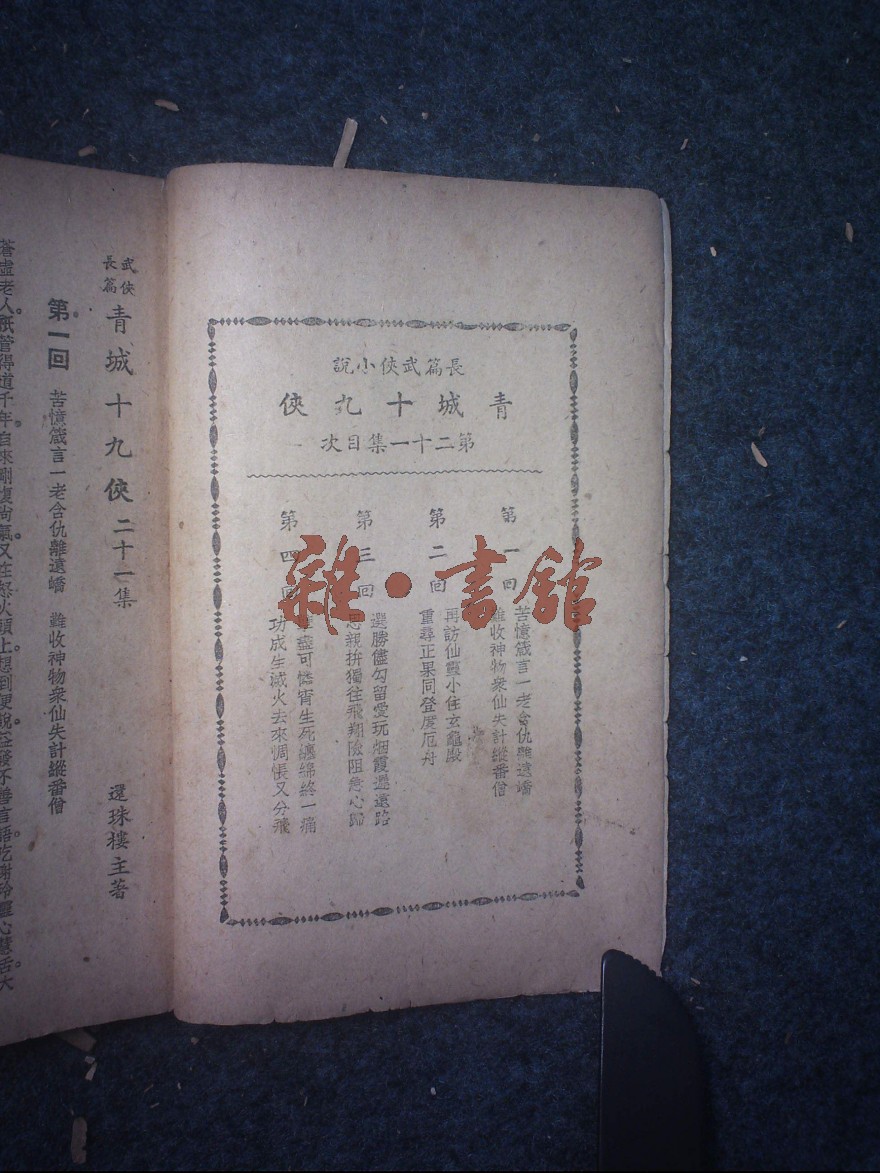 長篇武俠小說
青城十九俠
第二十一集目次
第一回
苦憶箴言一老含仇離遠嶠
難收神物衆仙失計縱番僧
第二回
再訪仙靈小住玄龜殿
重尋正果同登度厄舟
第三回
選勝儘勾留愛玩烟霞遲遠路
思親拚獨往飛翔險阻急心歸
第四回
盡可憐宵生死纏綿終一痛
功成生滅火去來惆悵又分飛
雜·書館
武俠長篇
青城十九俠 二十一集
還珠樓主著
第一回 苦憶箴言一老含仇離遠嶠 難收神物衆仙失計縱番僧
蒼虛老人。祇管得道千年。自來剛復尚氣。又在怒火頭上。想到便說。並發不善言語。吃謝玲靈心慧舌。大